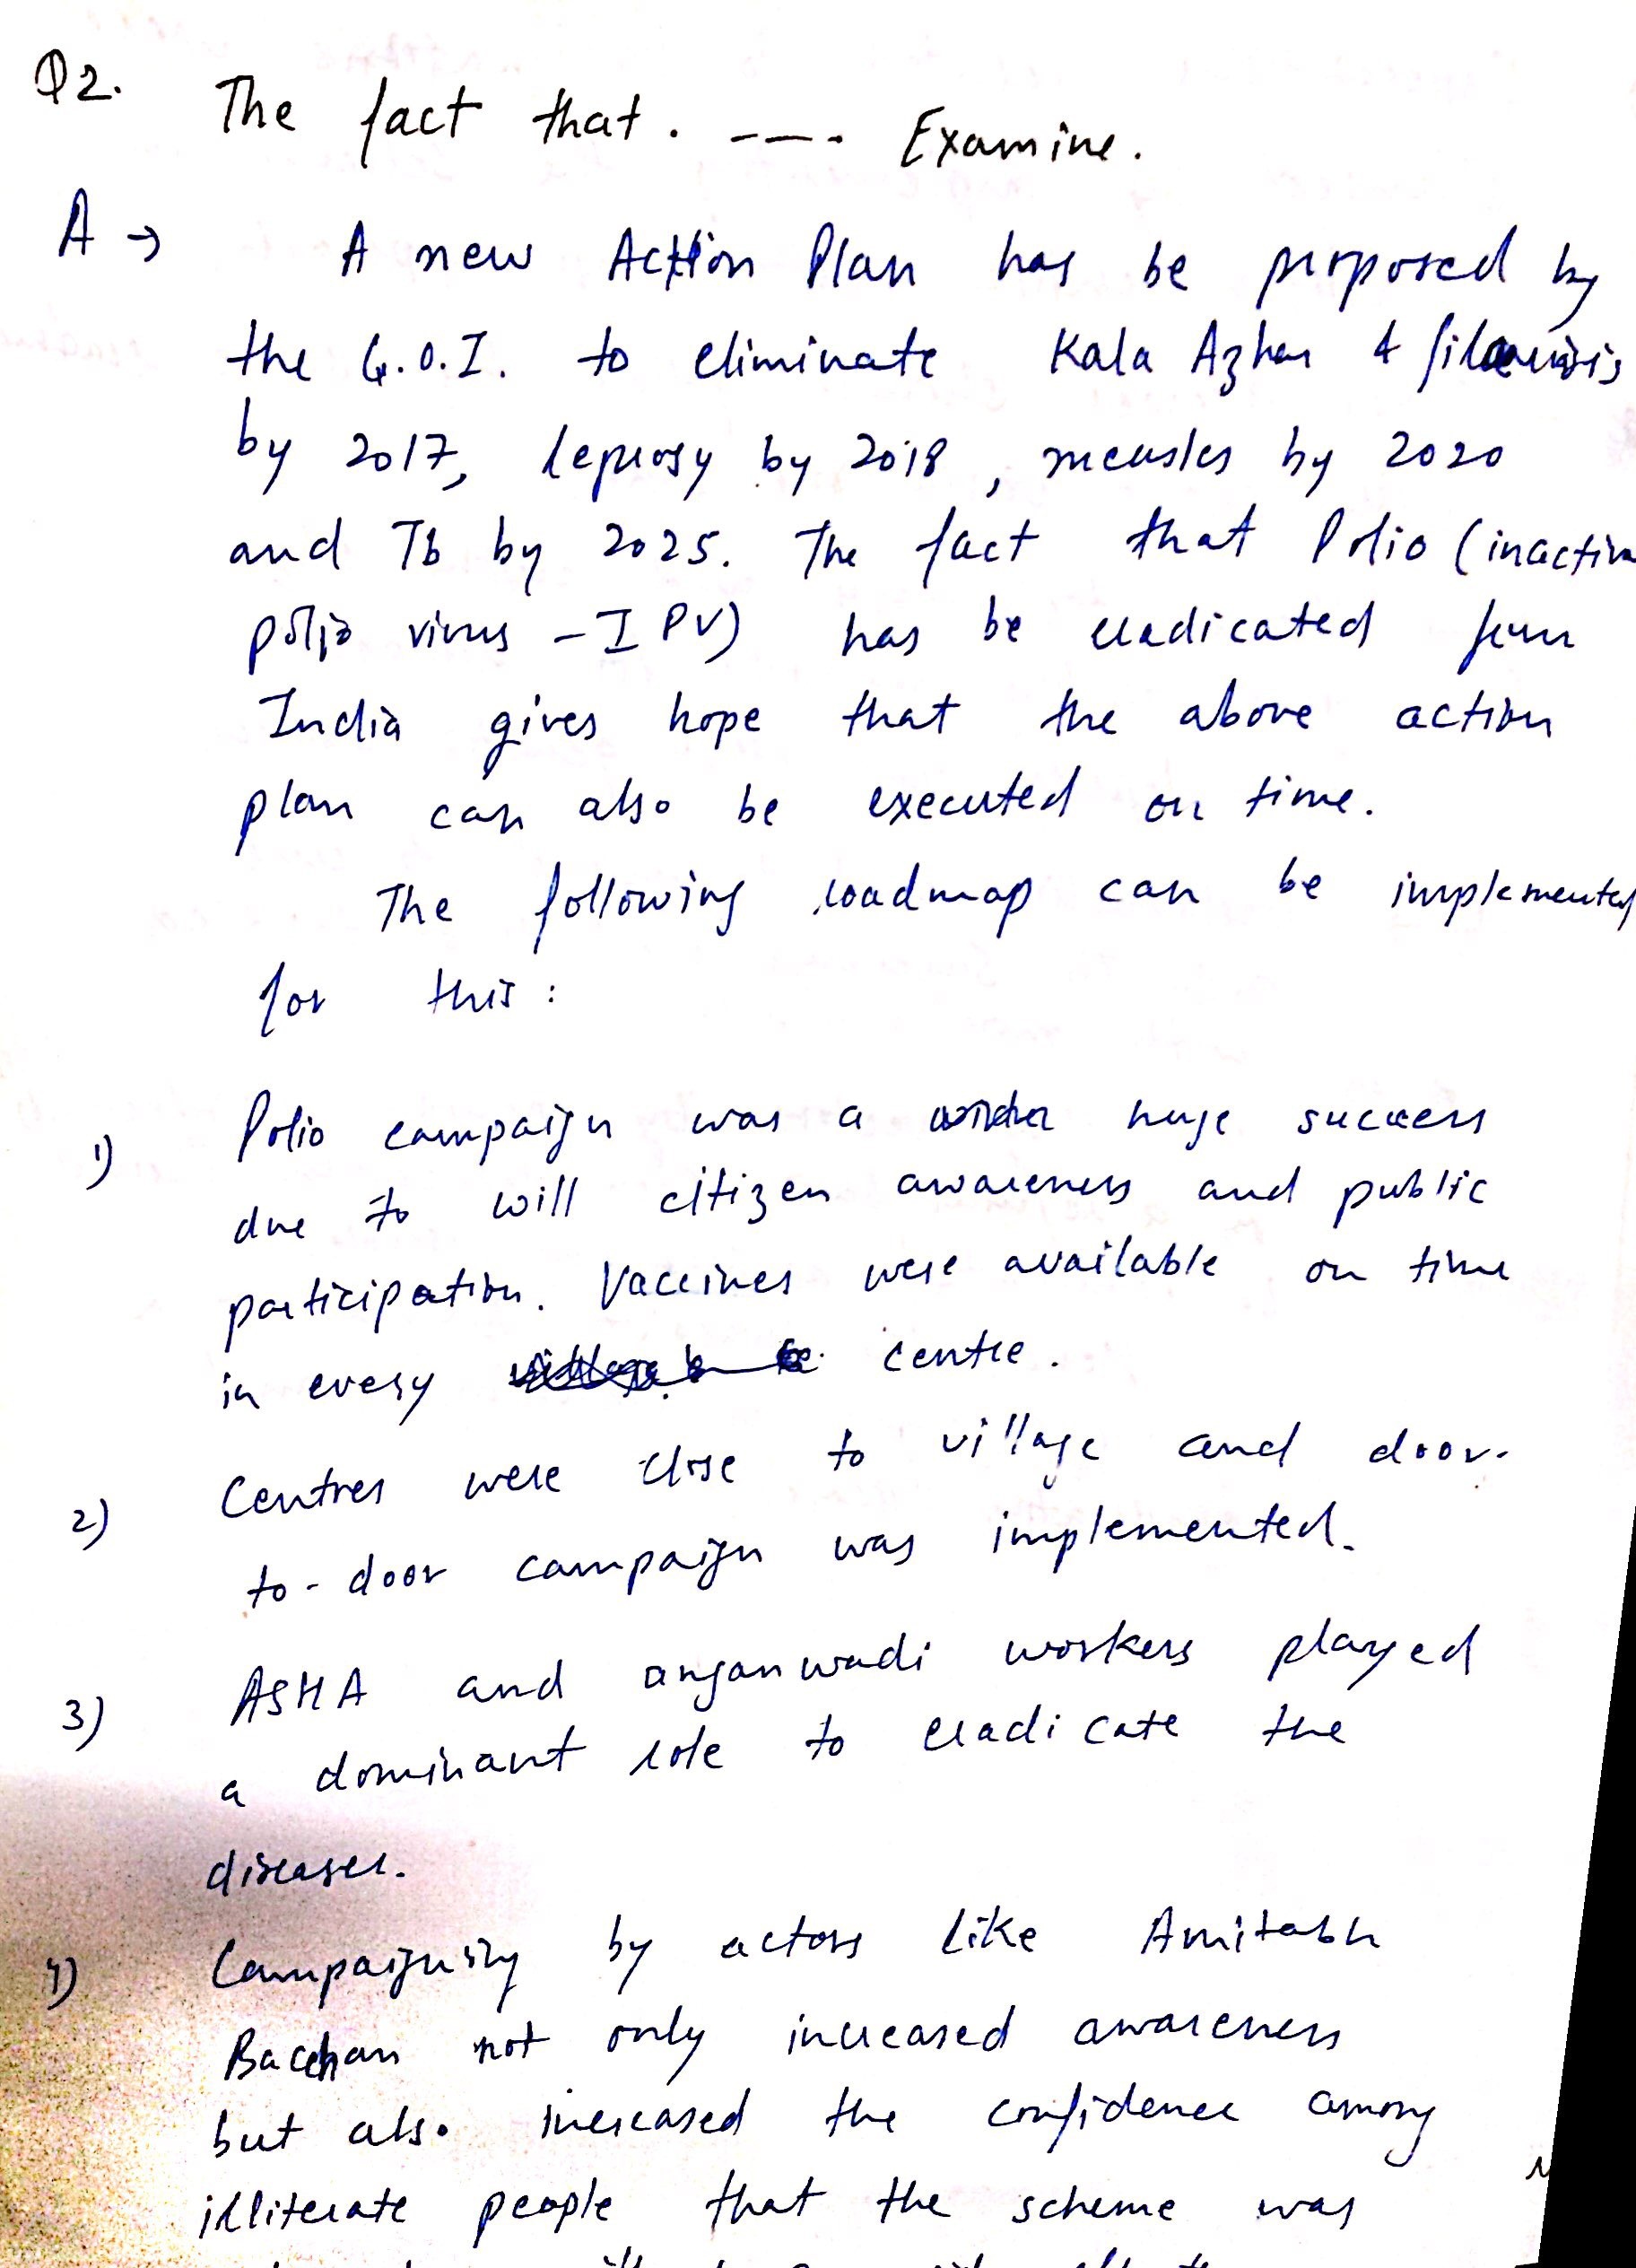 Q2. The fact that. ---- Examine.
A → A new Action Plan has be proposed by
the G.O.I. to eliminate Kala Azhar & filariasis
by 2017, leprosy by 2018, measles by 2020
and Tb by 2025. The fact that Polio (inactive
polio virus - IPV) has be eradicated from
India gives hope that the above action
plan can also be executed on time.
The following roadmap can be implemented
for this:
1) Polio campaign was a huge success
due to will citizen awareness and public
participation. Vaccines were available on time
in every centre.
2) Centres were close to village and door-
to-door campaign was implemented.
3) ASHA and anganwadi workers played
a dominant role to eradicate the
diseases.
4) Campaigning by actors like Amitabh
Bacchan not only increased awareness
but also increased the confidence among
illiterate people that the scheme was